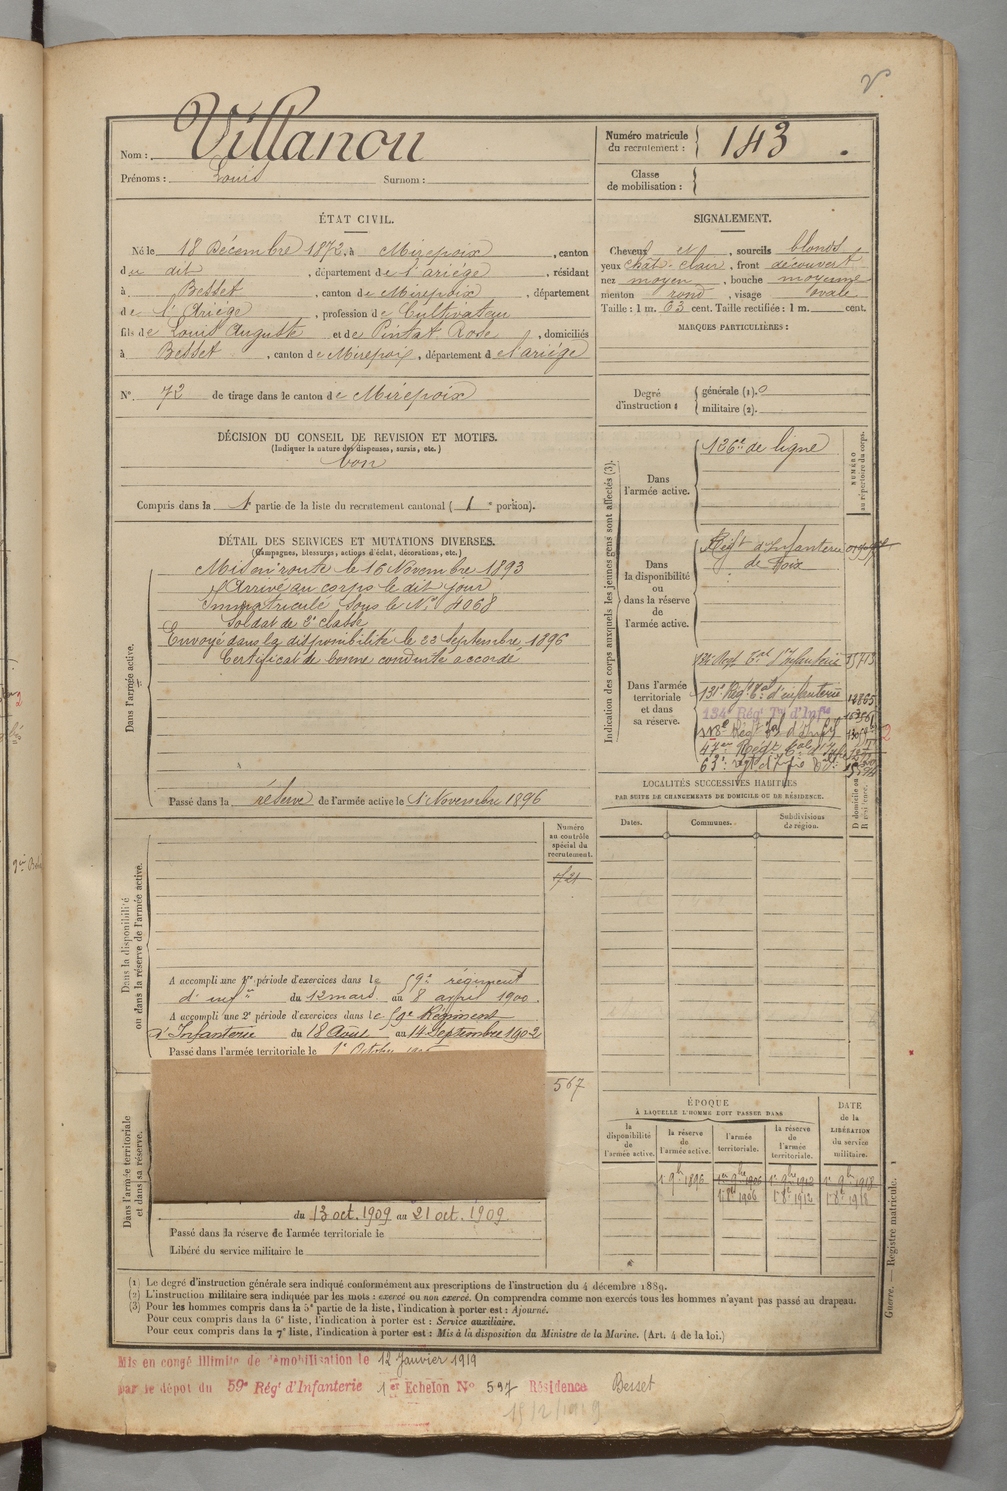 V.
Nom : Villanou
Prénoms : Louis Surnom :
Numéro matricule du recrutement : 143.
Classe de mobilisation :
ÉTAT CIVIL.
Né le 18 Décembre 1872, à Mirepoix, canton
du dit, département de l'ariége, résidant
à Besset, canton de Mirepoix, département
de l'Ariége, profession de Cultivateur
fils de Louis Auguste et de Pintat Rose, domiciliés
à Besset, canton de Mirepoix, département de l'ariége
N° 72 de tirage dans le canton de Mirepoix
DÉCISION DU CONSEIL DE REVISION ET MOTIFS.
(Indiquer la nature des dispenses, sursis, etc.)
bon
Compris dans la 1 partie de la liste du recrutement cantonal ( 1 e portion).
SIGNALEMENT.
Cheveux et, sourcils blonds
yeux chât-clair, front découvert
nez moyen, bouche moyenne
menton rond, visage ovale
Taille : 1 m. 63 cent. Taille rectifiée : 1 m. cent.
MARQUES PARTICULIÈRES :
Degré d'instruction : générale (1). 0
militaire (2).
DÉTAIL DES SERVICES ET MUTATIONS DIVERSES.
(Campagnes, blessures, actions d'éclat, décorations, etc.)
Dans l'armée active.
Mis en route le 16 Novembre 1893
Arrivé au corps le dit jour
Immatriculé sous le N° 4068
Soldat de 2e classe
Envoyé dans la disponibilité le 23 Septembre 1896
Certificat de bonne conduite accordé
Passé dans la réserve de l'armée active le 1 Novembre 1896
Indication des corps auxquels les jeunes gens sont affectés (3).
NUMÉRO au répertoire du corps.
Dans l'armée active.
126e de ligne
Dans la disponibilité ou dans la réserve de l'armée active.
Régt d'Infanterie
de Foix
Dans l'armée territoriale et dans sa réserve.
131e Régt Tal d'infanterie
134e Rég Tal d'Infie
LOCALITÉS SUCCESSIVES HABITÉES
PAR SUITE DE CHANGEMENTS DE DOMICILE OU DE RÉSIDENCE.
Dates. Communes. Subdivisions de région.
D domicile ou R résidence.
Dans la disponibilité ou dans la réserve de l'armée active.
Numéro au contrôle spécial du recrutement.
1721
A accompli une 1re période d'exercices dans le 59e régiment
d'infie du 12 mars au 8 avril 1900.
A accompli une 2e période d'exercices dans le 59e Régiment
d'Infanterie du 18 Août au 14 Septembre 1902
Passé dans l'armée territoriale le
567
Dans l'armée territoriale et dans sa réserve.
du 13 oct. 1909 au 21 oct. 1909
Passé dans la réserve de l'armée territoriale le
Libéré du service militaire le
ÉPOQUE
À LAQUELLE L'HOMME DOIT PASSER DANS
DATE de la LIBÉRATION du service militaire.
la disponibilité de l'armée active.
la réserve de l'armée active.
l'armée territoriale.
la réserve de l'armée territoriale.
1 9bre 1896 1er 9bre 1906 1 9bre 1912 1er 9bre 1918
1 8bre 1906 1 8bre 1912 1 8bre 1918
Guerre. — Registre matricule. 1
(1) Le degré d'instruction générale sera indiqué conformément aux prescriptions de l'instruction du 4 décembre 1889.
(2) L'instruction militaire sera indiquée par les mots : exercé ou non exercé. On comprendra comme non exercés tous les hommes n'ayant pas passé au drapeau.
(3) Pour les hommes compris dans la 5e partie de la liste, l'indication à porter est : Ajourné.
Pour ceux compris dans la 6e liste, l'indication à porter est : Service auxiliaire.
Pour ceux compris dans la 7e liste, l'indication à porter est : Mis à la disposition du Ministre de la Marine. (Art. 4 de la loi.)
Mis en congé illimité de démobilisation le 12 Janvier 1919
par le dépôt du 59e Régt d'Infanterie 1er Echelon N° 597 Résidence Besset
15/2/1919